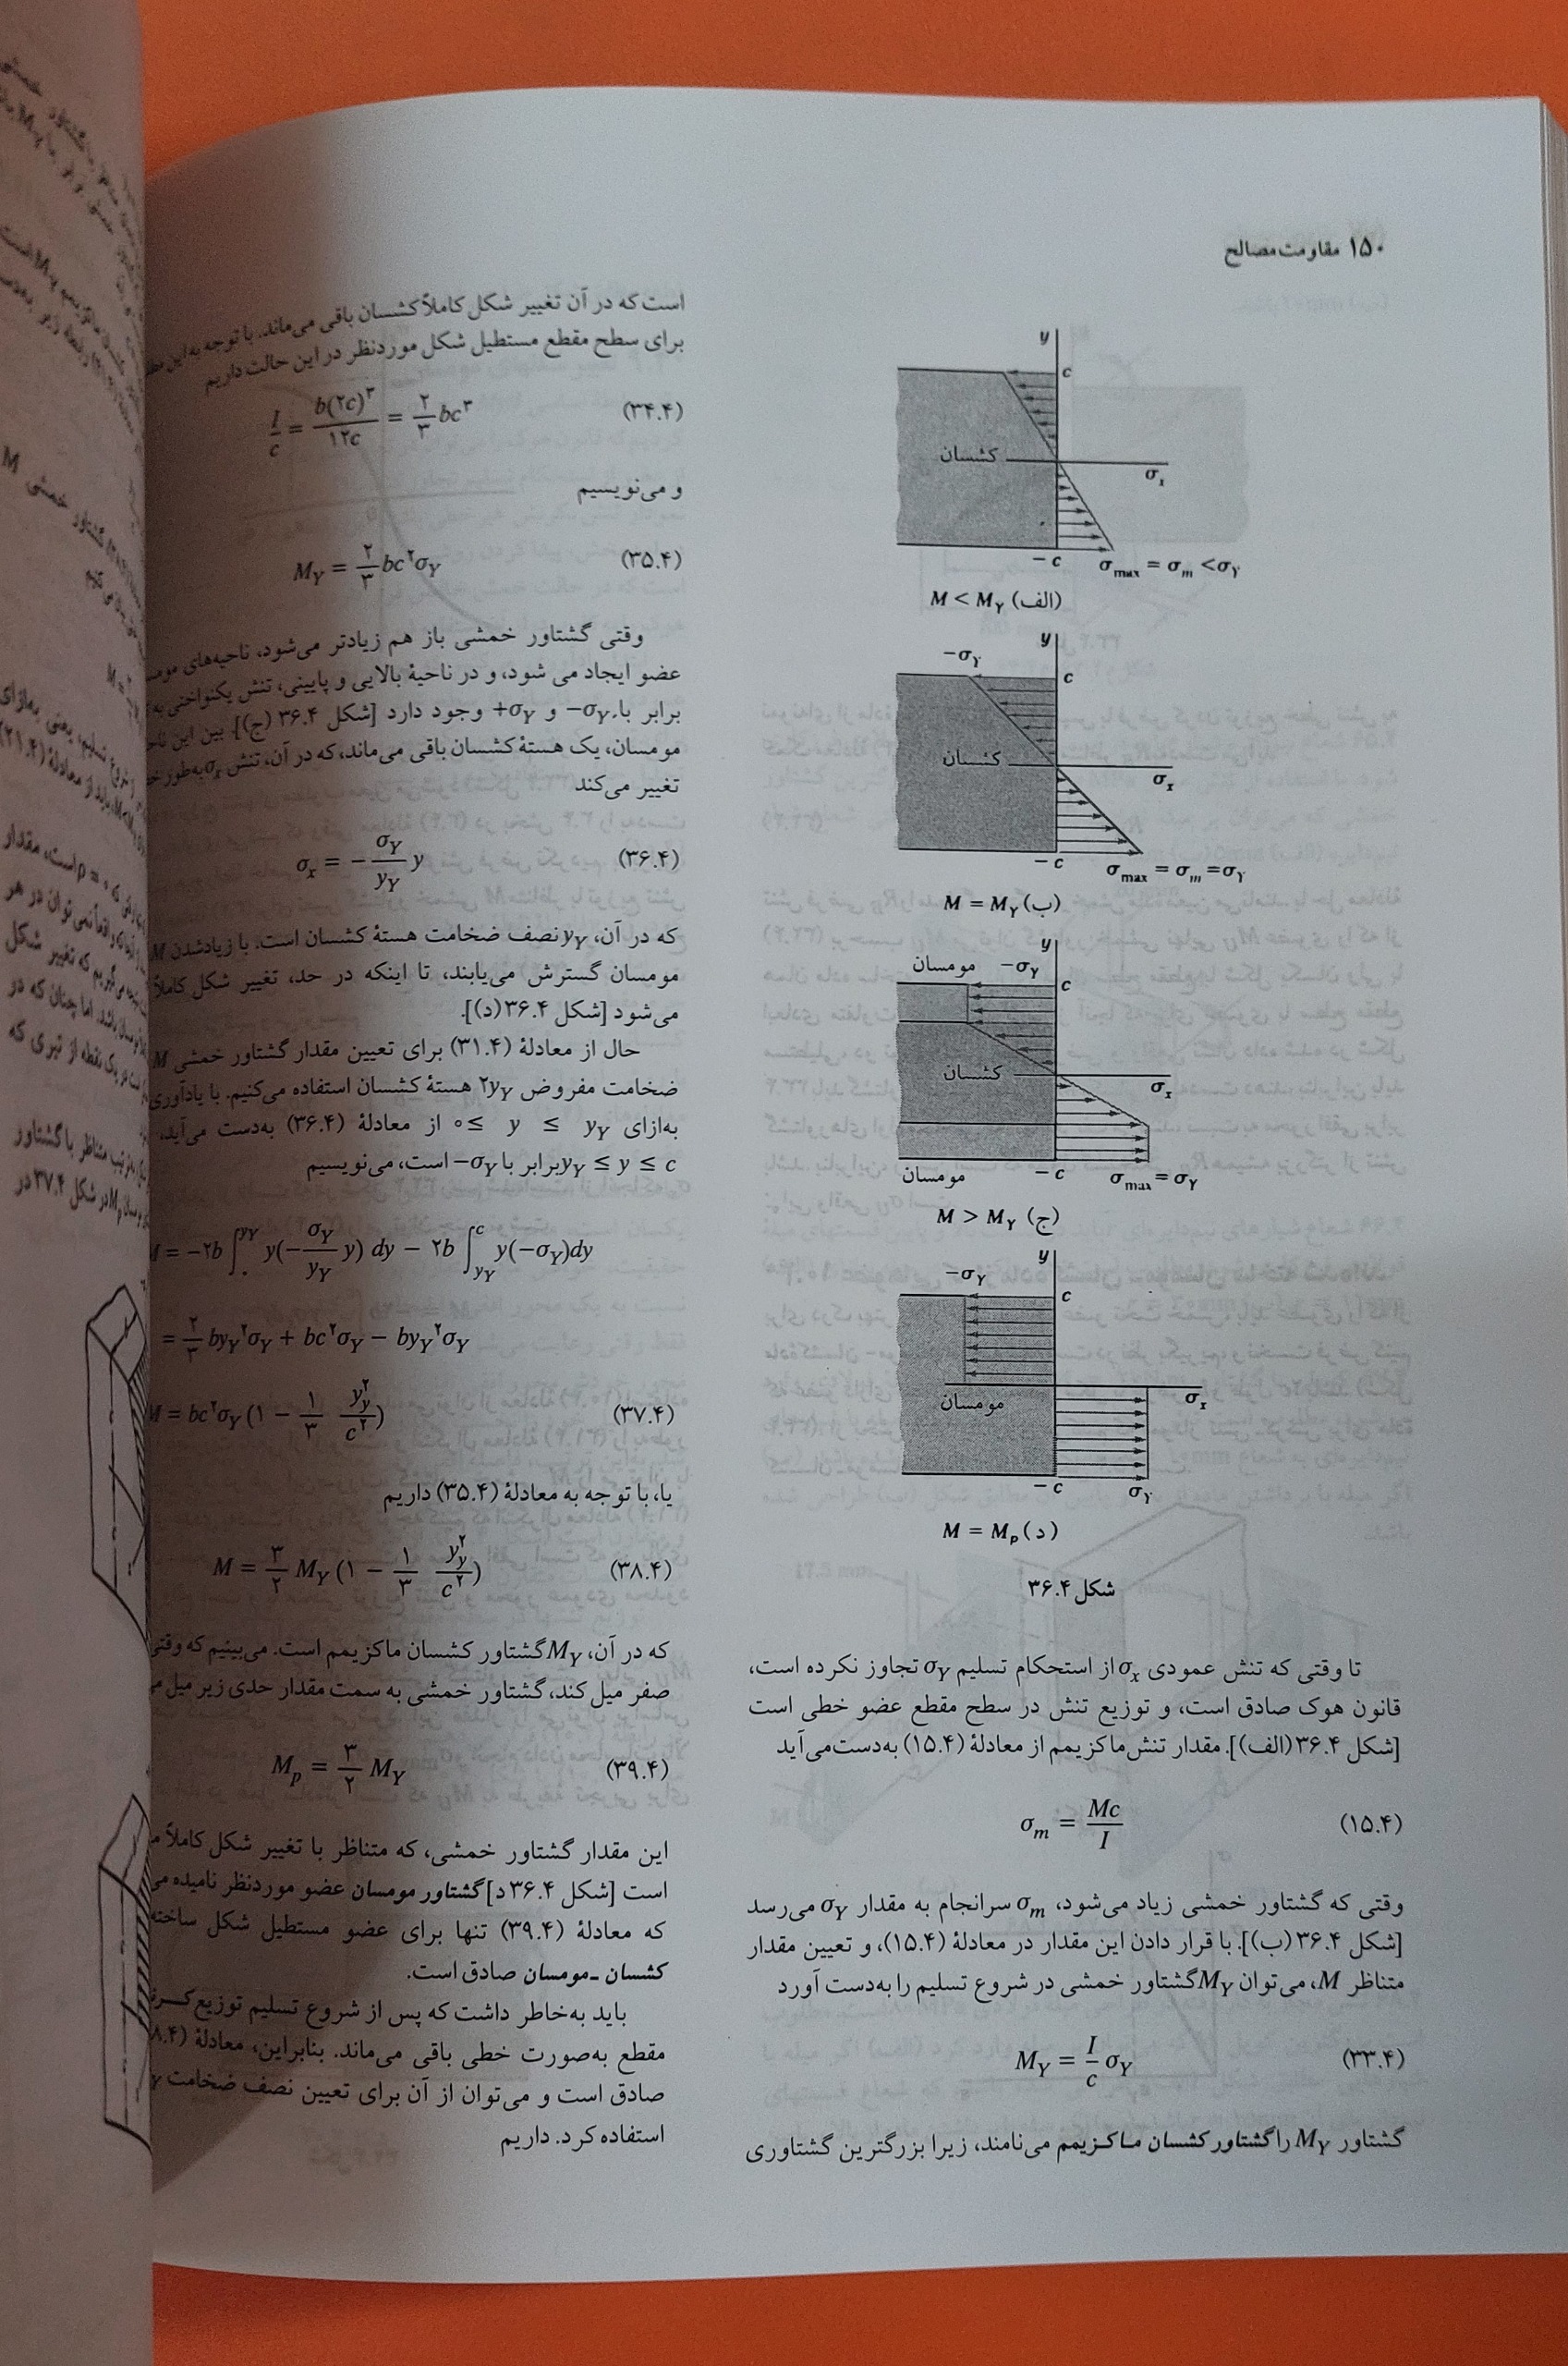 ۱۵۰ مقاومت مصالح
y
c
کشسان
σx
−c
σmax = σm < σY
(الف) M < MY
y
−σY
c
کشسان
σx
−c
σmax = σm = σY
(ب) M = MY
y
مومسان −σY
c
کشسان
σx
مومسان
−c
σmax = σY
(ج) M > MY
y
−σY
c
σx
مومسان
−c
σY
(د) M = Mp
شکل ۳۶.۴
تا وقتی که تنش عمودی σx از استحکام تسلیم σY تجاوز نکرده است،
قانون هوک صادق است، و توزیع تنش در سطح مقطع عضو خطی است
[شکل ۳۶.۴ (الف)]. مقدار تنش ماکزیمم از معادلهٔ (۱۵.۴) به‌دست می‌آید
σm = Mc/I (۱۵.۴)
وقتی که گشتاور خمشی زیاد می‌شود، σm سرانجام به مقدار σY می‌رسد
[شکل ۳۶.۴ (ب)]. با قرار دادن این مقدار در معادلهٔ (۱۵.۴)، و تعیین مقدار
متناظر M، می‌توان MY گشتاور خمشی در شروع تسلیم را به‌دست آورد
MY = I/c σY (۳۳.۴)
گشتاور MY را گشتاور کشسان ماکزیمم می‌نامند، زیرا بزرگترین گشتاوری
است که در آن تغییر شکل کاملاً کشسان باقی می‌ماند. با توجه به این
برای سطح مقطع مستطیل شکل موردنظر در این حالت داریم
I/c = b(۲c)۳/۱۲c = ۲/۳ bc۳ (۳۴.۴)
و می‌نویسیم
MY = ۲/۳ bc۲σY (۳۵.۴)
وقتی گشتاور خمشی باز هم زیادتر می‌شود، ناحیه‌های
عضو ایجاد می شود، و در ناحیهٔ بالایی و پایینی، تنش یکنواختی به
برابر با −σY و +σY وجود دارد [شکل ۳۶.۴ (ج)]. بین این
مومسان، یک هستهٔ کشسان باقی می‌ماند، که در آن، تنش σx به‌طور
تغییر می‌کند
σx = − σY/yY y (۳۶.۴)
که در آن، yY نصف ضخامت هستهٔ کشسان است. با زیادشدن M
مومسان گسترش می‌یابند، تا اینکه در حد، تغییر شکل کاملاً
می‌شود [شکل ۳۶.۴ (د)].
حال از معادلهٔ (۳۱.۴) برای تعیین مقدار گشتاور خمشی M
ضخامت مفروض ۲yY هستهٔ کشسان استفاده می‌کنیم. با یادآوری
به‌ازای ۰ ≤ y ≤ yY از معادلهٔ (۳۶.۴) به‌دست می‌آید،
yY ≤ y ≤ c برابر با −σY است، می‌نویسیم
M = −۲b ∫۰^yY y(− σY/yY y) dy − ۲b ∫yY^c y(−σY)dy
= ۲/۳ byY۲σY + bc۲σY − byY۲σY
M = bc۲σY (۱ − ۱/۳ yY۲/c۲) (۳۷.۴)
یا، با توجه به معادلهٔ (۳۵.۴) داریم
M = ۳/۲ MY (۱ − ۱/۳ yY۲/c۲) (۳۸.۴)
که در آن، MY گشتاور کشسان ماکزیمم است. می‌بینیم که وقتی
صفر میل کند، گشتاور خمشی به سمت مقدار حدی زیر میل
Mp = ۳/۲ MY (۳۹.۴)
این مقدار گشتاور خمشی، که متناظر با تغییر شکل کاملاً
است [شکل ۳۶.۴ د] گشتاور مومسان عضو موردنظر نامیده
که معادلهٔ (۳۹.۴) تنها برای عضو مستطیل شکل ساخته
کشسان ـ مومسان صادق است.
باید به‌خاطر داشت که پس از شروع تسلیم توزیع
مقطع به‌صورت خطی باقی می‌ماند. بنابراین، معادلهٔ
صادق است و می‌توان از آن برای تعیین نصف ضخامت
استفاده کرد. داریم